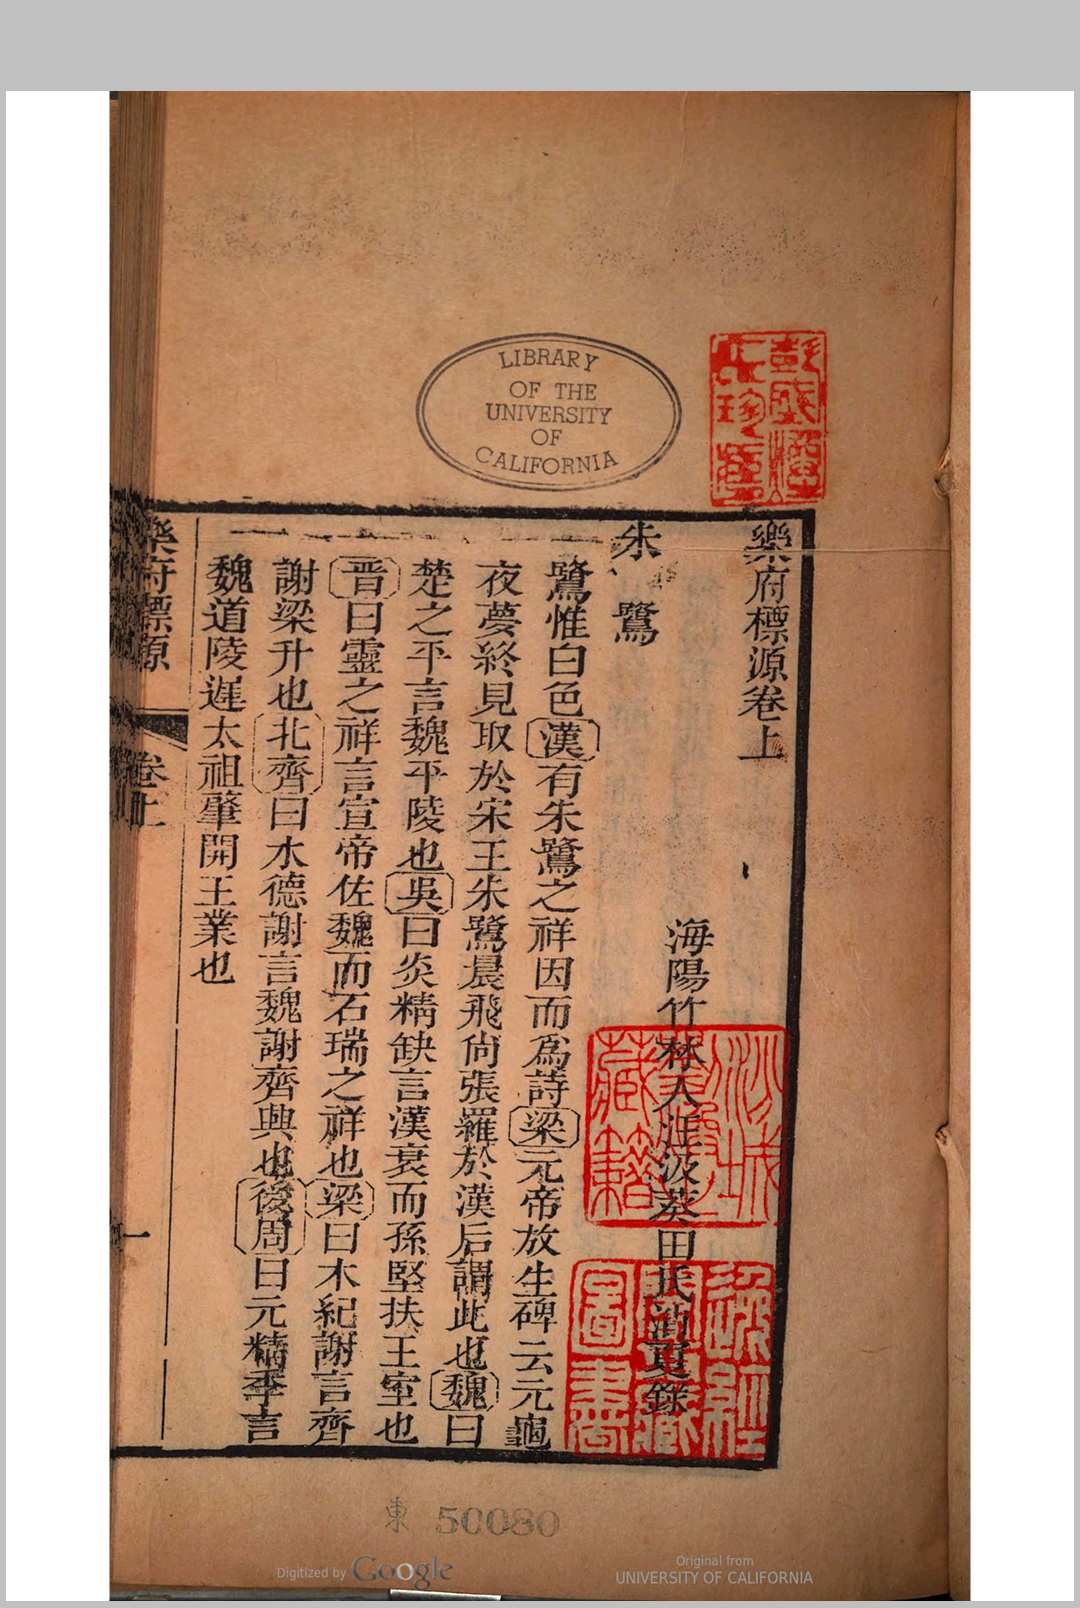 LIBRARY
OF THE
UNIVERSITY
OF
CALIFORNIA
樂府標源卷上
海陽竹林人汪汲葵田氏消夏錄
朱鷺
鷺惟白色漢有朱鷺之祥因而爲詩梁元帝放生碑云元龜
夜夢終見取於宋王朱鷺晨飛尙張羅於漢后謂此也魏曰
楚之平言魏平陵也吳曰炎精缺言漢衰而孫堅扶王室也
晉曰靈之祥言宣帝佐魏而石瑞之祥也梁曰木紀謝言齊
謝梁升也北齊曰水德謝言魏謝齊興也後周曰元精季言
魏道陵遲太祖肇開王業也
樂府標源
卷上
一
東 50080
Digitized by Google
Original from
UNIVERSITY OF CALIFORNIA